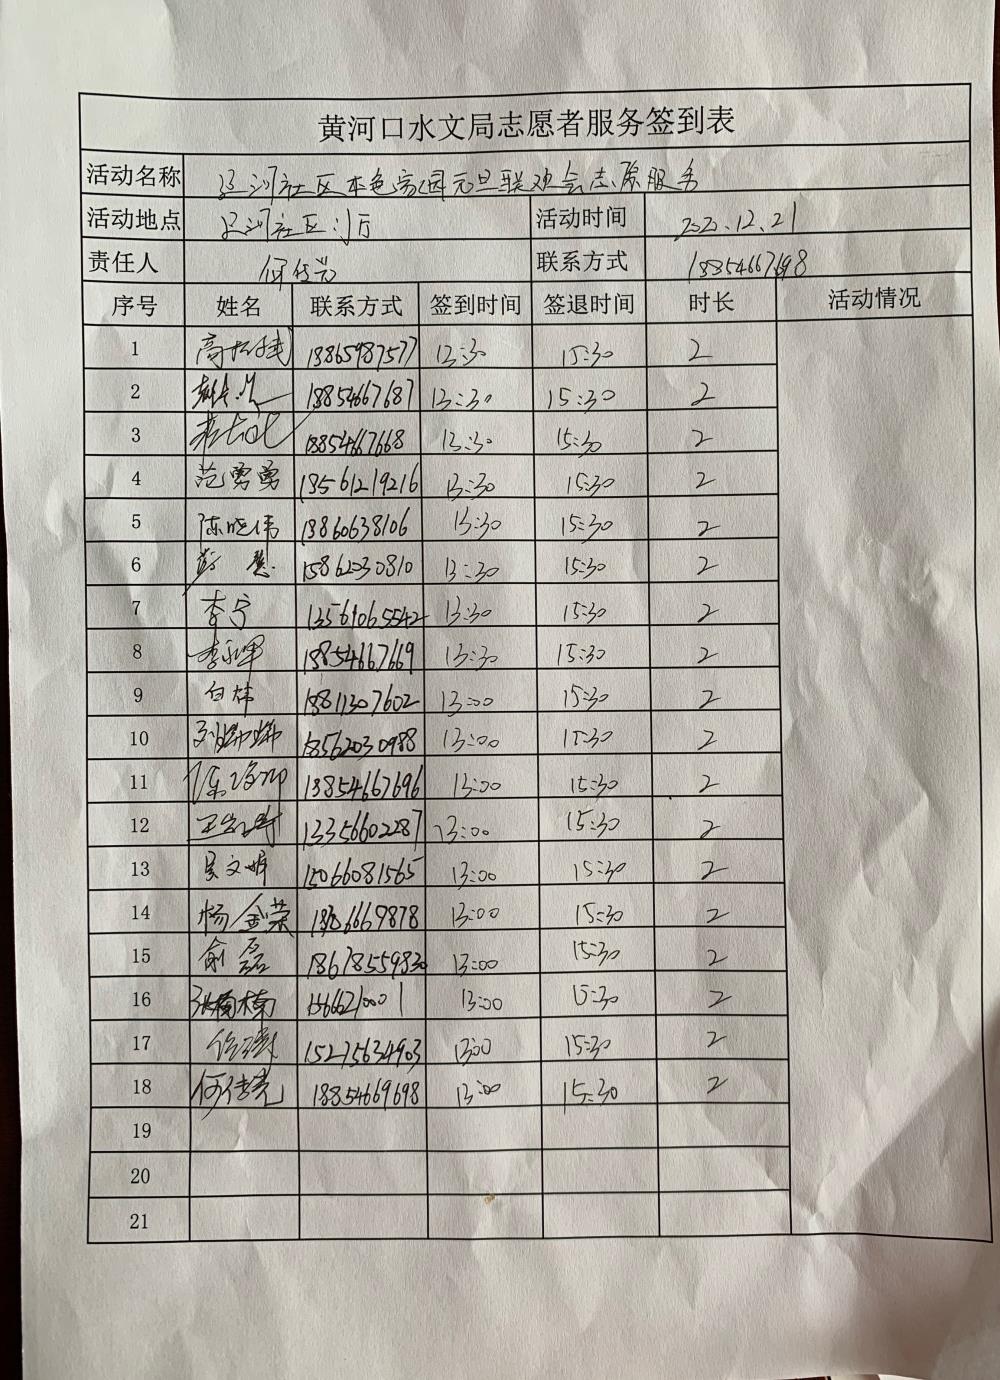 黄河口水文局志愿者服务签到表
活动名称 社区本色家园元旦联欢会志愿服务
活动地点 社区门厅 活动时间 2020.12.21
责任人 何传亮 联系方式
序号 姓名 联系方式 签到时间 签退时间 时长 活动情况
1 18865987577 13:30 15:30 2
2 18854667687 13:30 15:30 2
3 18854667668 13:30 15:30 2
4 范勇勇 18561219216 13:30 15:30 2
5 陈晓伟 13:30 15:30 2
6 慧 15862030810 13:30 15:30 2
7 李宁 13561065542 13:30 15:30 2
8 18854667669 13:30 15:30 2
9 白炜 18811307602 13:00 15:30 2
10 刘娜娜 18562030988 13:00 15:30 2
11 18854667696 13:00 15:30 2
12 13356602287 13:00 15:30 2
13 吴文娟 15066081565 13:00 15:30 2
14 杨金荣 13:00 15:30 2
15 俞磊 18678559830 13:00 15:30 2
16 张楠楠 13:00 15:30 2
17 15275634903 13:00 15:30 2
18 何传亮 18854669698 13:00 15:30 2
19
20
21